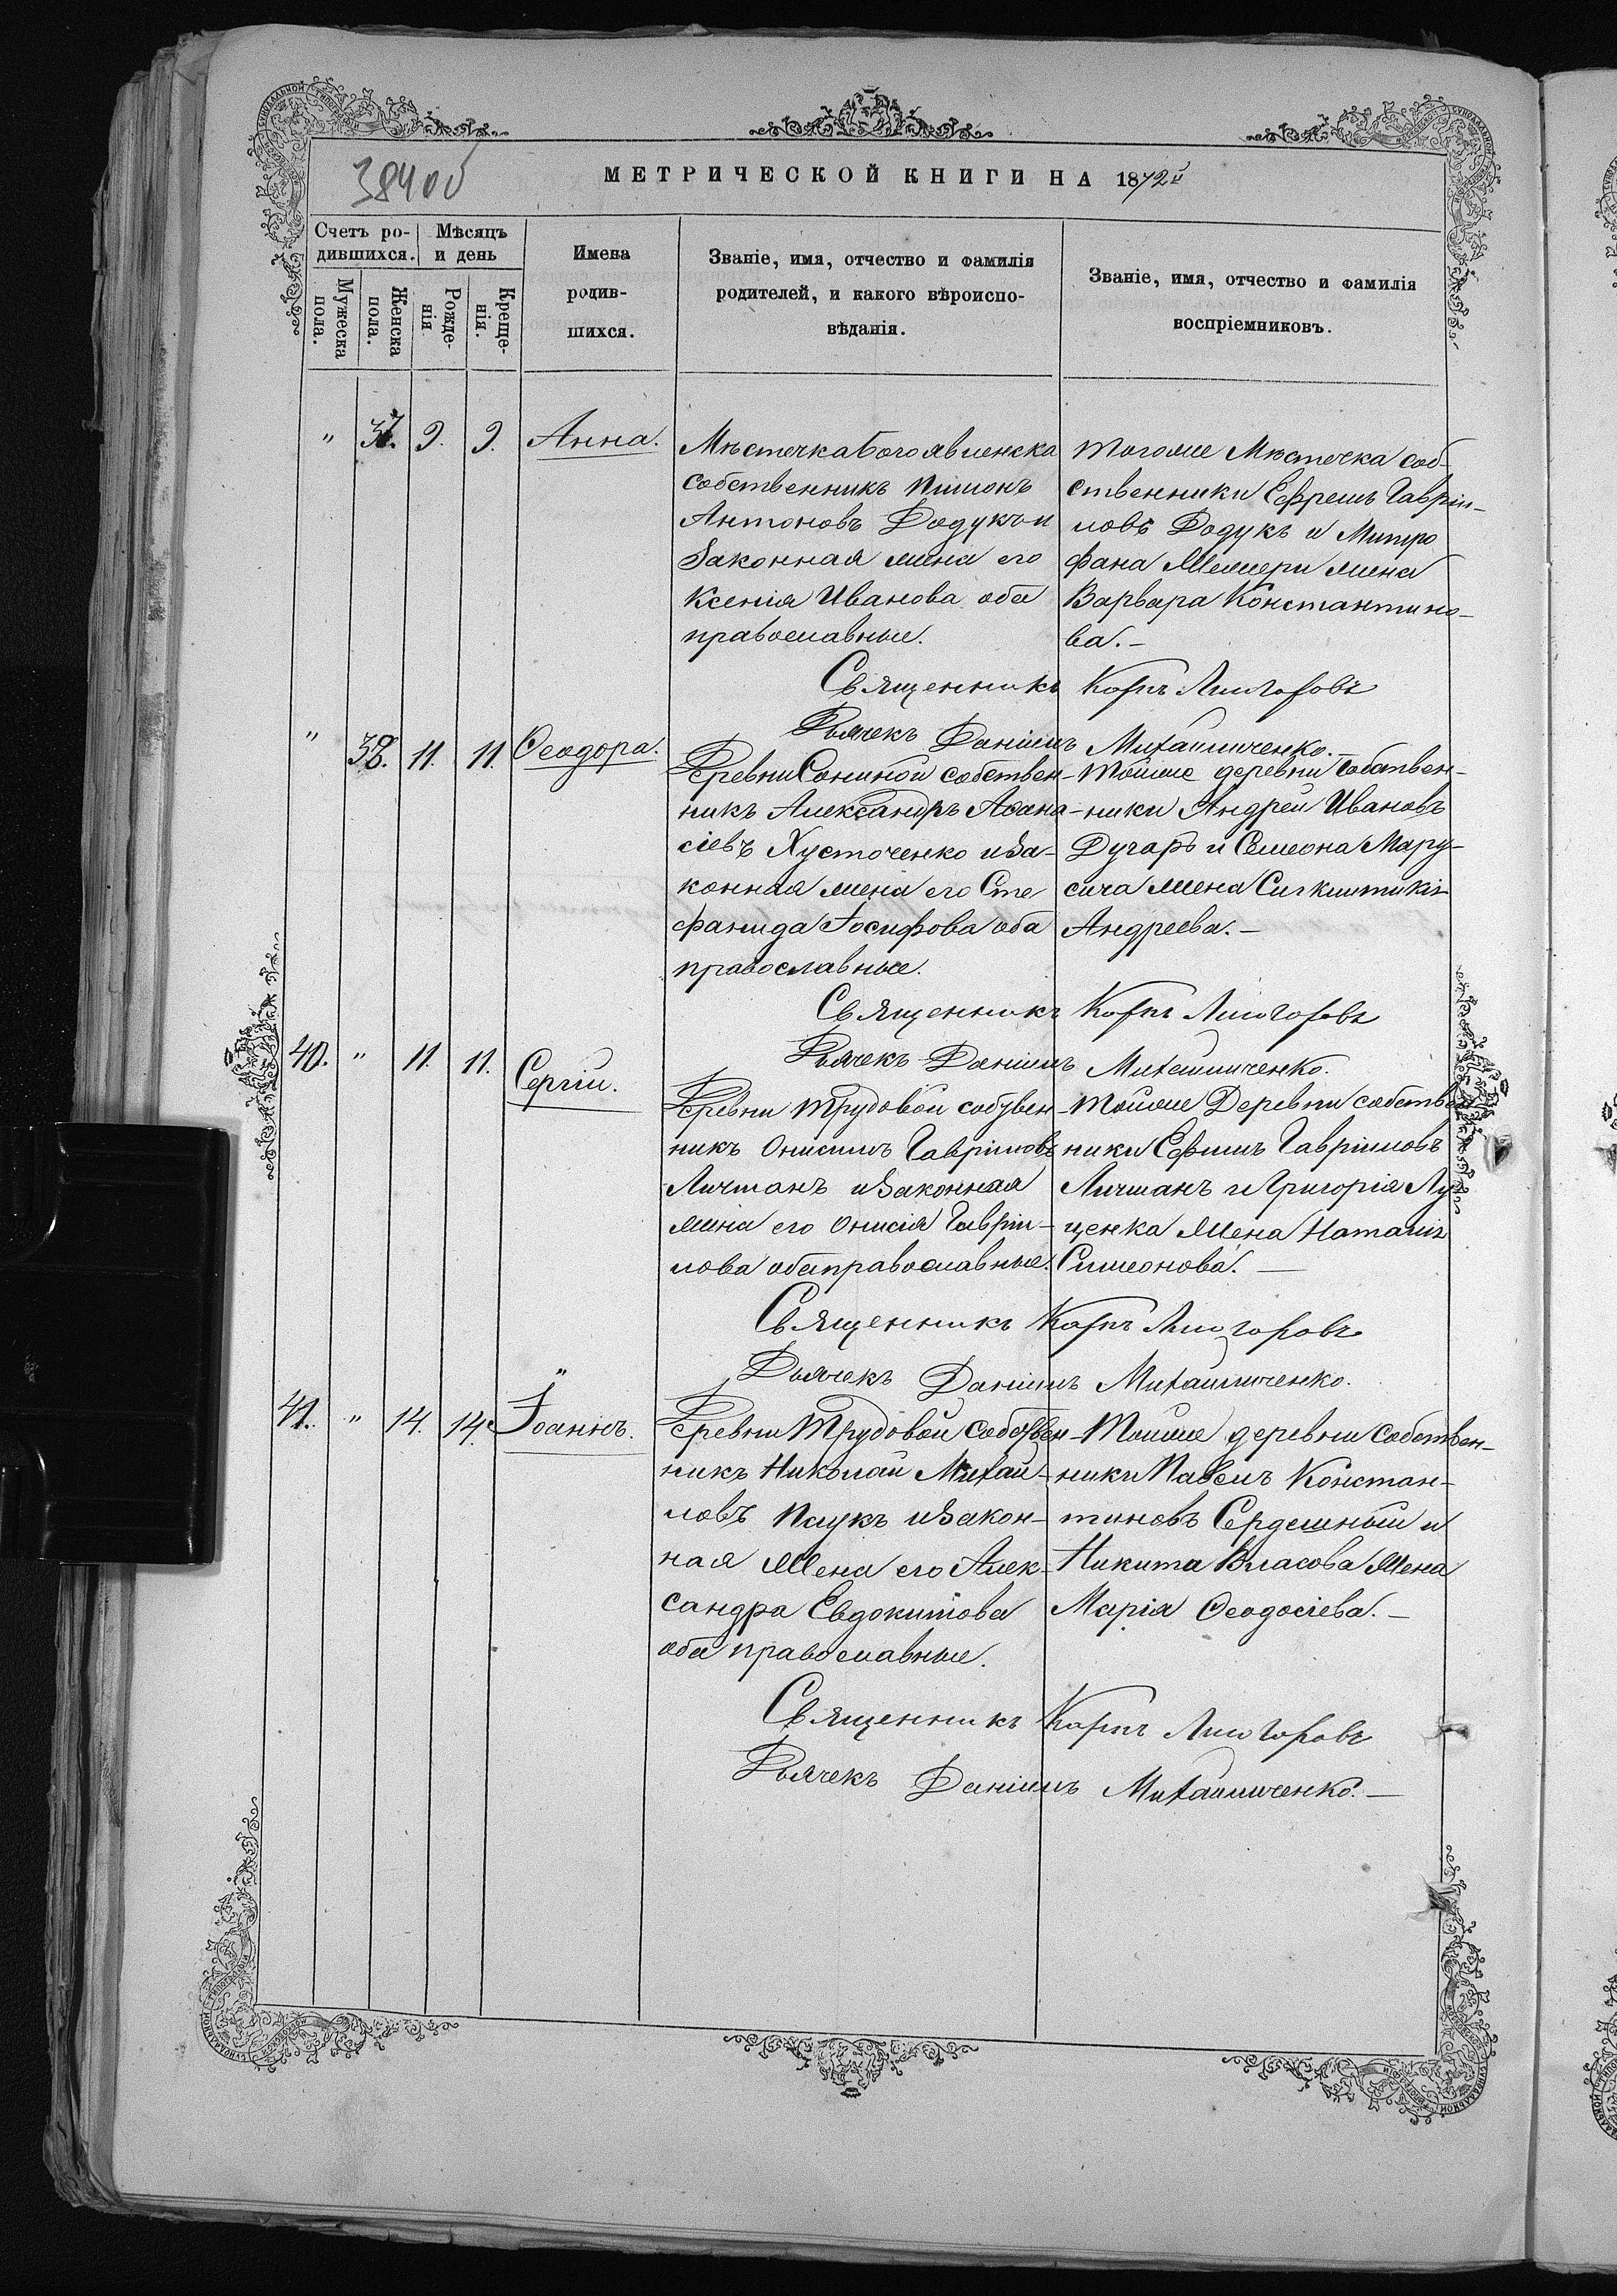 384 об
МЕТРИЧЕСКОЙ КНИГИ НА 1872й
Счетъ ро-
дившихся.
Мѣсяцъ
и день
Мужеска
пола.
Женска
пола.
Рожде-
нія
Креще-
нія.
Имена
родив-
шихся.
Званіе, имя, отчество и фамилія
родителей, и какого вѣроиспо-
вѣданія.
Званіе, имя, отчество и фамилія
воспріемниковъ.
" 37. 9. 9. Анна.
Мѣстечка Богоявленска
собственникъ Пимонъ
Антоновъ Додукъ и
законная жена его
Ксенія Иванова оба
православные.
Тогоже Мѣстечка соб-
ственники Ефремъ Гаврiи-
ловъ Додукъ и Митро
фана жена
Варвара Константино-
ва.-
Священникъ Карпъ Лисогоровъ
Дьячекъ Даніилъ Михайличенко.-
" 38. 11. 11. Ѳеодора.
Деревни Сониной собствен-
никъ Александръ Аѳана-
сіевъ Хусточенко и за-
конная жена его Сте
фанида Іосифова оба
православные.
Тойже деревни собствен-
ники Андрей Ивановъ
Дугаръ и Симеона Мару-
сича жена
Андреева.-
Священникъ Карпъ Лисогоровъ
Дьячекъ Даніилъ Михайличенко.
40. " 11. 11. Сергій.
Деревни Трудовой собствен-
никъ Онисимъ Гавріиловъ
Личманъ и законная
жена его Онисія Гаврiи-
лова оба православные.
Тойже Деревни собствен
ники Ефимъ Гавріиловъ
Личманъ и Григорія Лу
ценка жена Наталія
Симеонова.-
Священникъ Карпъ Лисогоровъ
Дьячекъ Даніилъ Михайличенко.
41. " 14. 14. Іоаннъ.
Деревни Трудовой собствен-
никъ Николай Михай-
ловъ Паукъ и закон-
ная жена его Алек-
сандра Евдокимова
оба православные.
Тойже деревни собствен-
ники Павелъ Констан-
тиновъ Сердешный и
Никита Власова жена
Марія Ѳеодосіева.-
Священникъ Карпъ Лисогоровъ
Дьячекъ Даніилъ Михайличенко.-